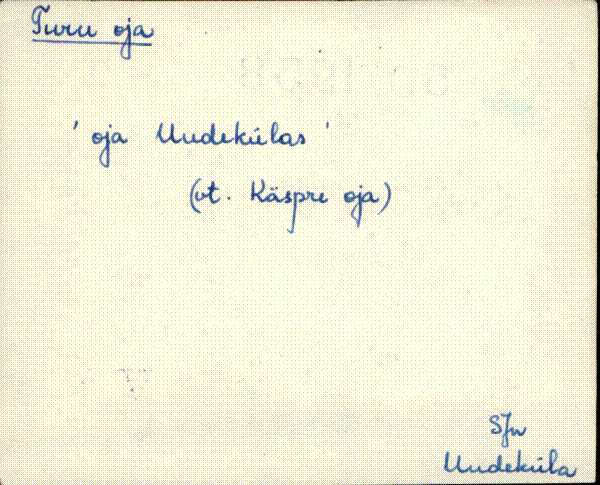 Turu oja
' oja Uudekülas '
(vt. Käspre oja)
SJn
Uudeküla